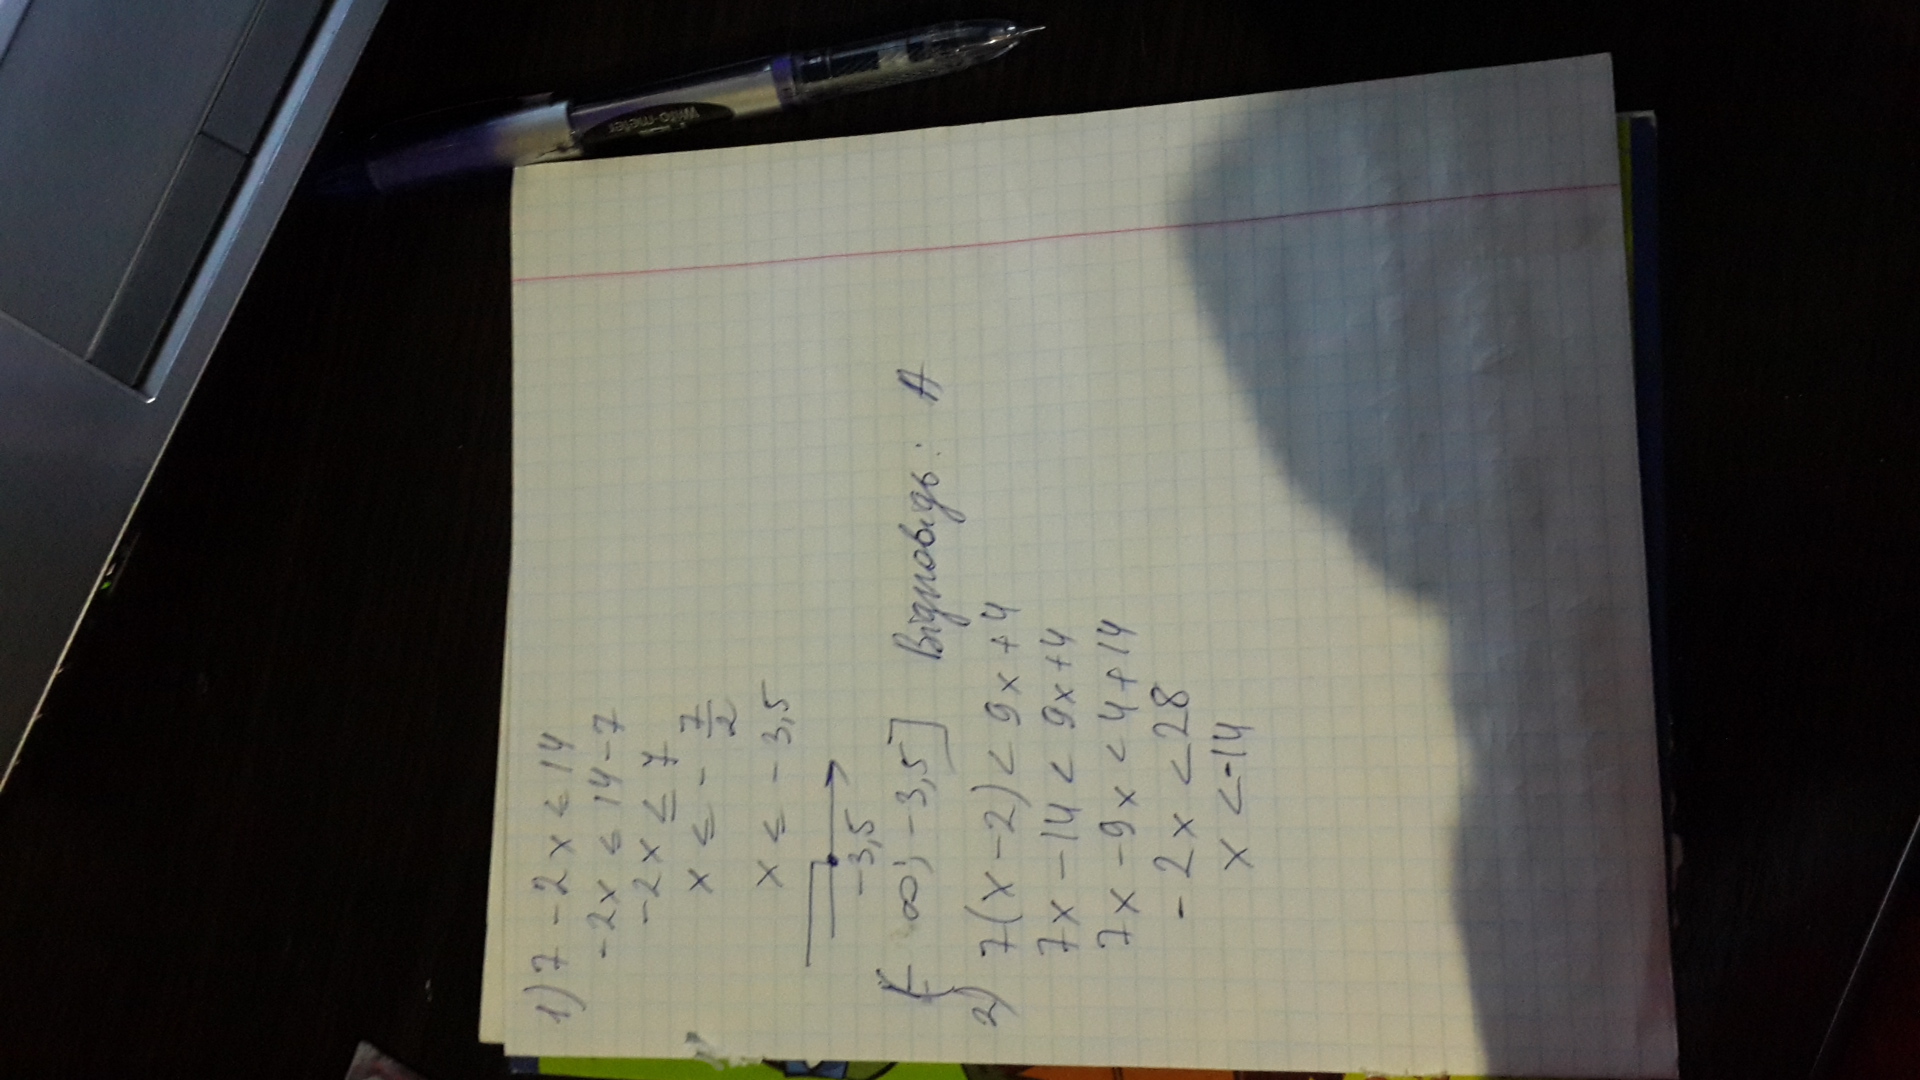 1) 7 - 2x ≤ 14
-2x ≤ 14-7
-2x ≤ 7
x ≤ - 7/2
x ≤ -3,5
-3,5
(-∞; -3,5] Відповідь: А
2) 7(x-2) < 9x+4
7x-14 < 9x+4
7x-9x < 4+14
-2x < 28
x <-14
Write-meter